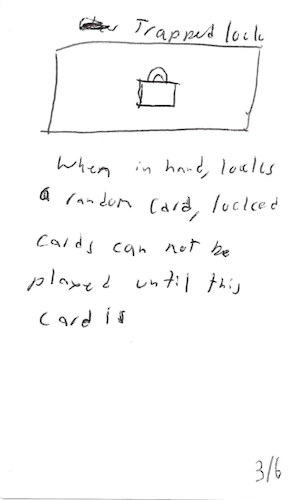 Trapped lock
When in hand, locks
a random card, locked
cards can not be
played until this
card is
3/6